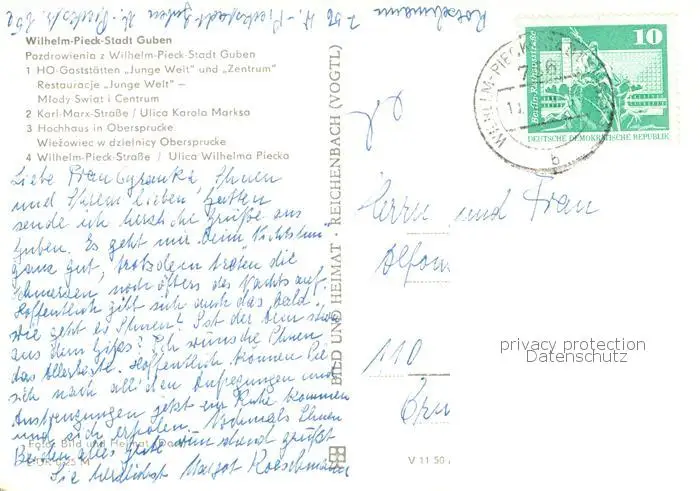 Rotschmann 756 W.-Pieckstadt Guben W. Pieckstr.
Wilhelm-Pieck-Stadt Guben
Pozdrowienia z Wilhelm-Pieck-Stadt Guben
1 HO-Gaststätten „Junge Welt" und „Zentrum"
Restauracje „Junge Welt" –
Młody Swiat i Centrum
2 Karl-Marx-Straße / Ulica Karola Marksa
3 Hochhaus in Obersprucke
Wieżowiec w dzielnicy Obersprucke
4 Wilhelm-Pieck-Straße / Ulica Wilhelma Piecka
Liebe Ihnen
und Ihrem lieben Gatten
sende ich herzliche Grüße aus
Guben. Es geht mir beim
ganz gut, trotzdem treten die
Schmerzen noch öfters des Nachts auf.
Hoffentlich gibt sich auch das bald.
Wie geht es Ihnen? Ist der
aus dem Gips? Ich wünsche Ihnen
das Allerbeste. Hoffentlich können Sie
sich nach all den Aufregungen und
Anstrengungen jetzt zur Ruhe kommen
und sich erholen. Nochmals Ihnen
Beiden alles Gute und grüßt
Sie herzlichst Margot
Foto: Bild und Heimat
BILD UND HEIMAT · REICHENBACH (VOGTL)
10
Berlin-Rathausstraße
DEUTSCHE DEMOKRATISCHE REPUBLIK
WILHELM-PIECK-STADT
b
Herrn und Frau
Alfon
110
privacy protection
Datenschutz
V 11 50